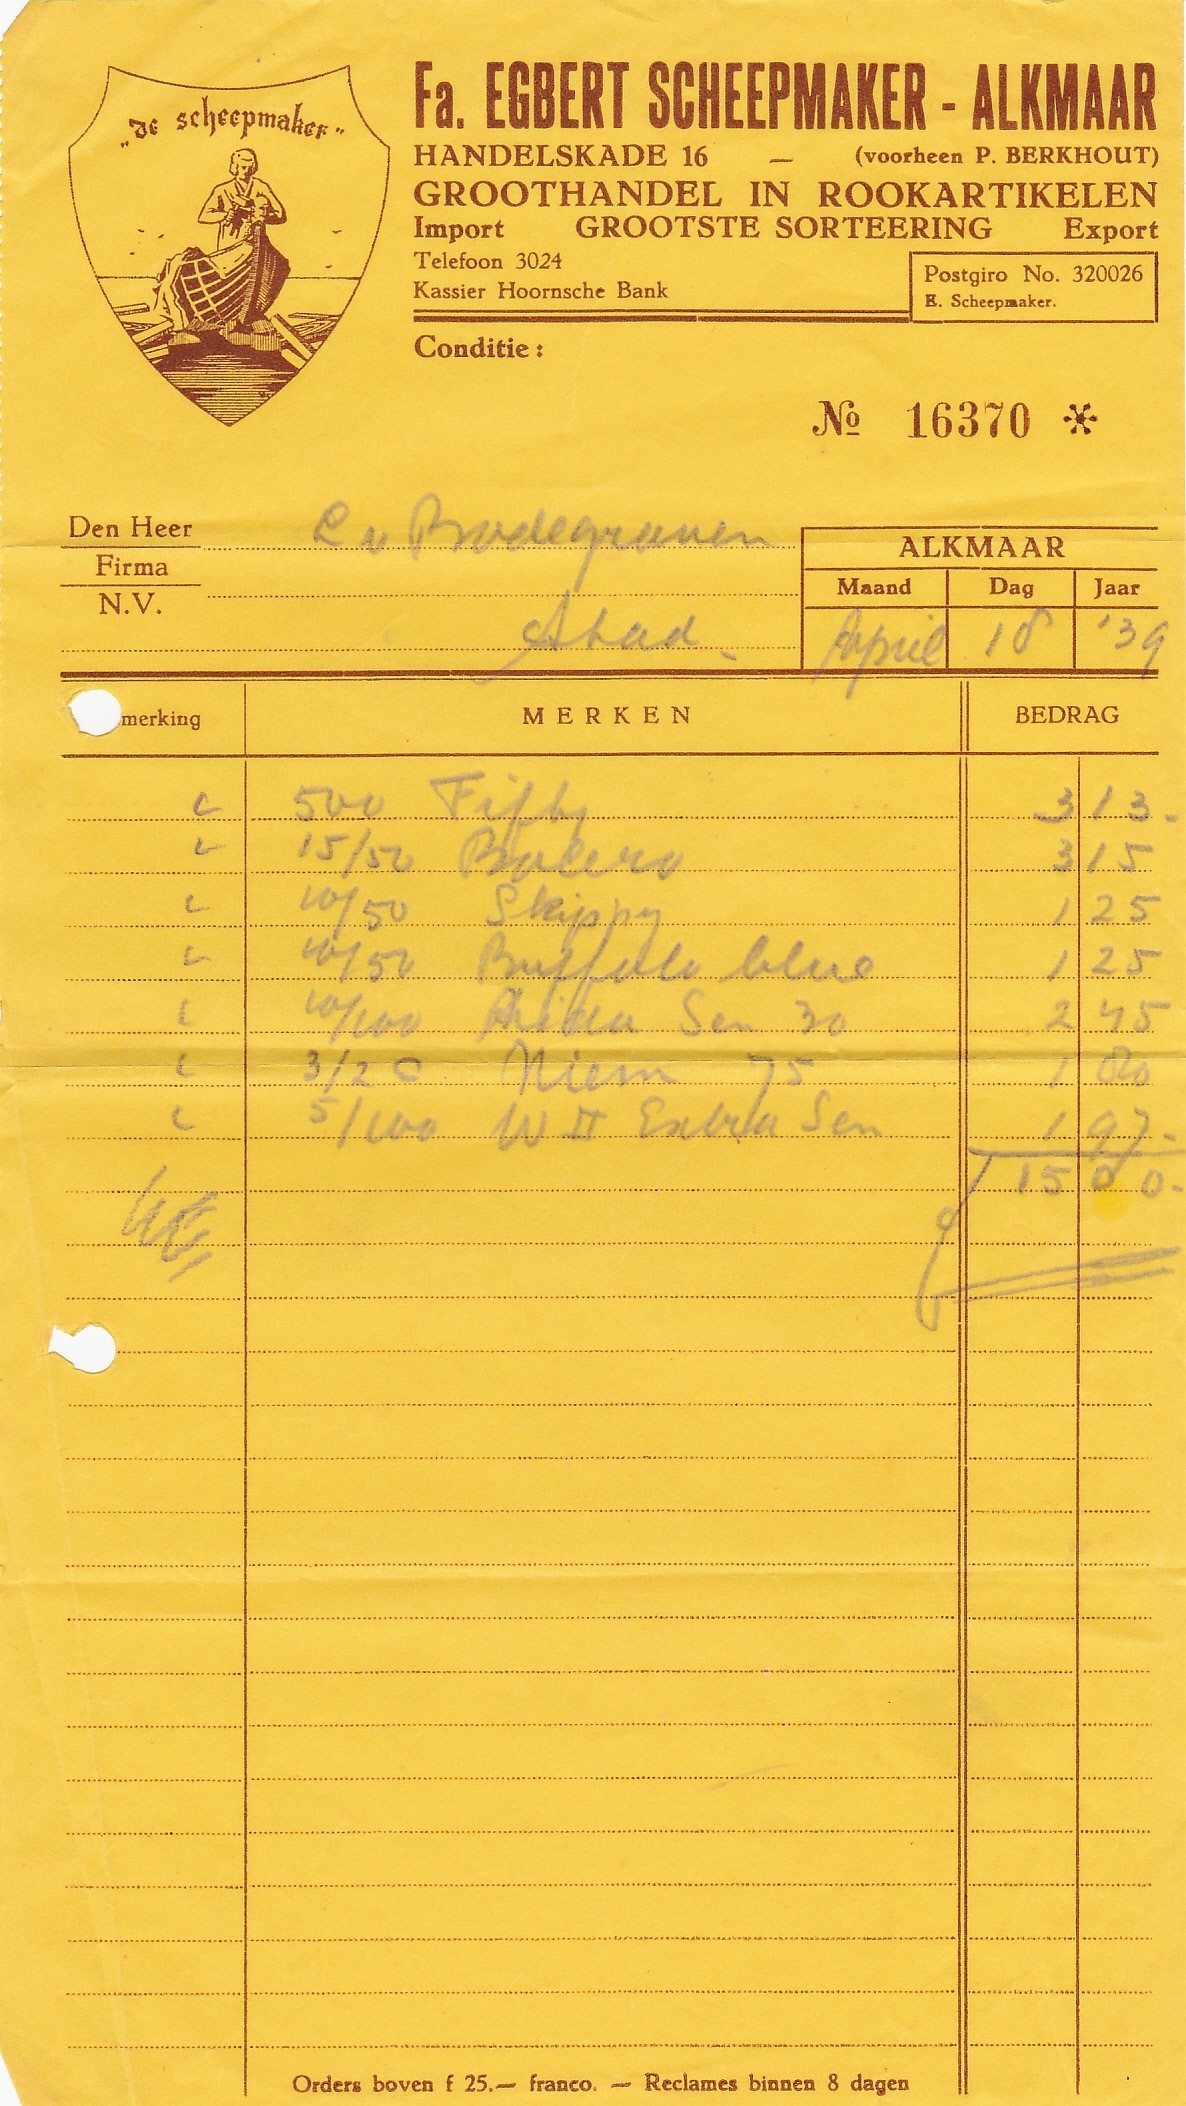 „de scheepmaker”
Fa. EGBERT SCHEEPMAKER - ALKMAAR
HANDELSKADE 16 — (voorheen P. BERKHOUT)
GROOTHANDEL IN ROOKARTIKELEN
Import GROOTSTE SORTEERING Export
Telefoon 3024
Kassier Hoornsche Bank
Postgiro No. 320026
E. Scheepmaker.
Conditie :
No 16370 *
Den Heer
Firma
N.V.
v Bodegraven
Stad
ALKMAAR
Maand Dag Jaar
April 18 '39
merking MERKEN BEDRAG
500 Fifty 3 13.
15/50 Bolero 3 15
10/50 Skippy 1 25
10/50 Buffalo blue 1 25
10/100 Sen 30 2 45
3/20 Niem 75 1 80
5/100 W II Extra Sen 1 97.
15 00.
Orders boven f 25.— franco. — Reclames binnen 8 dagen